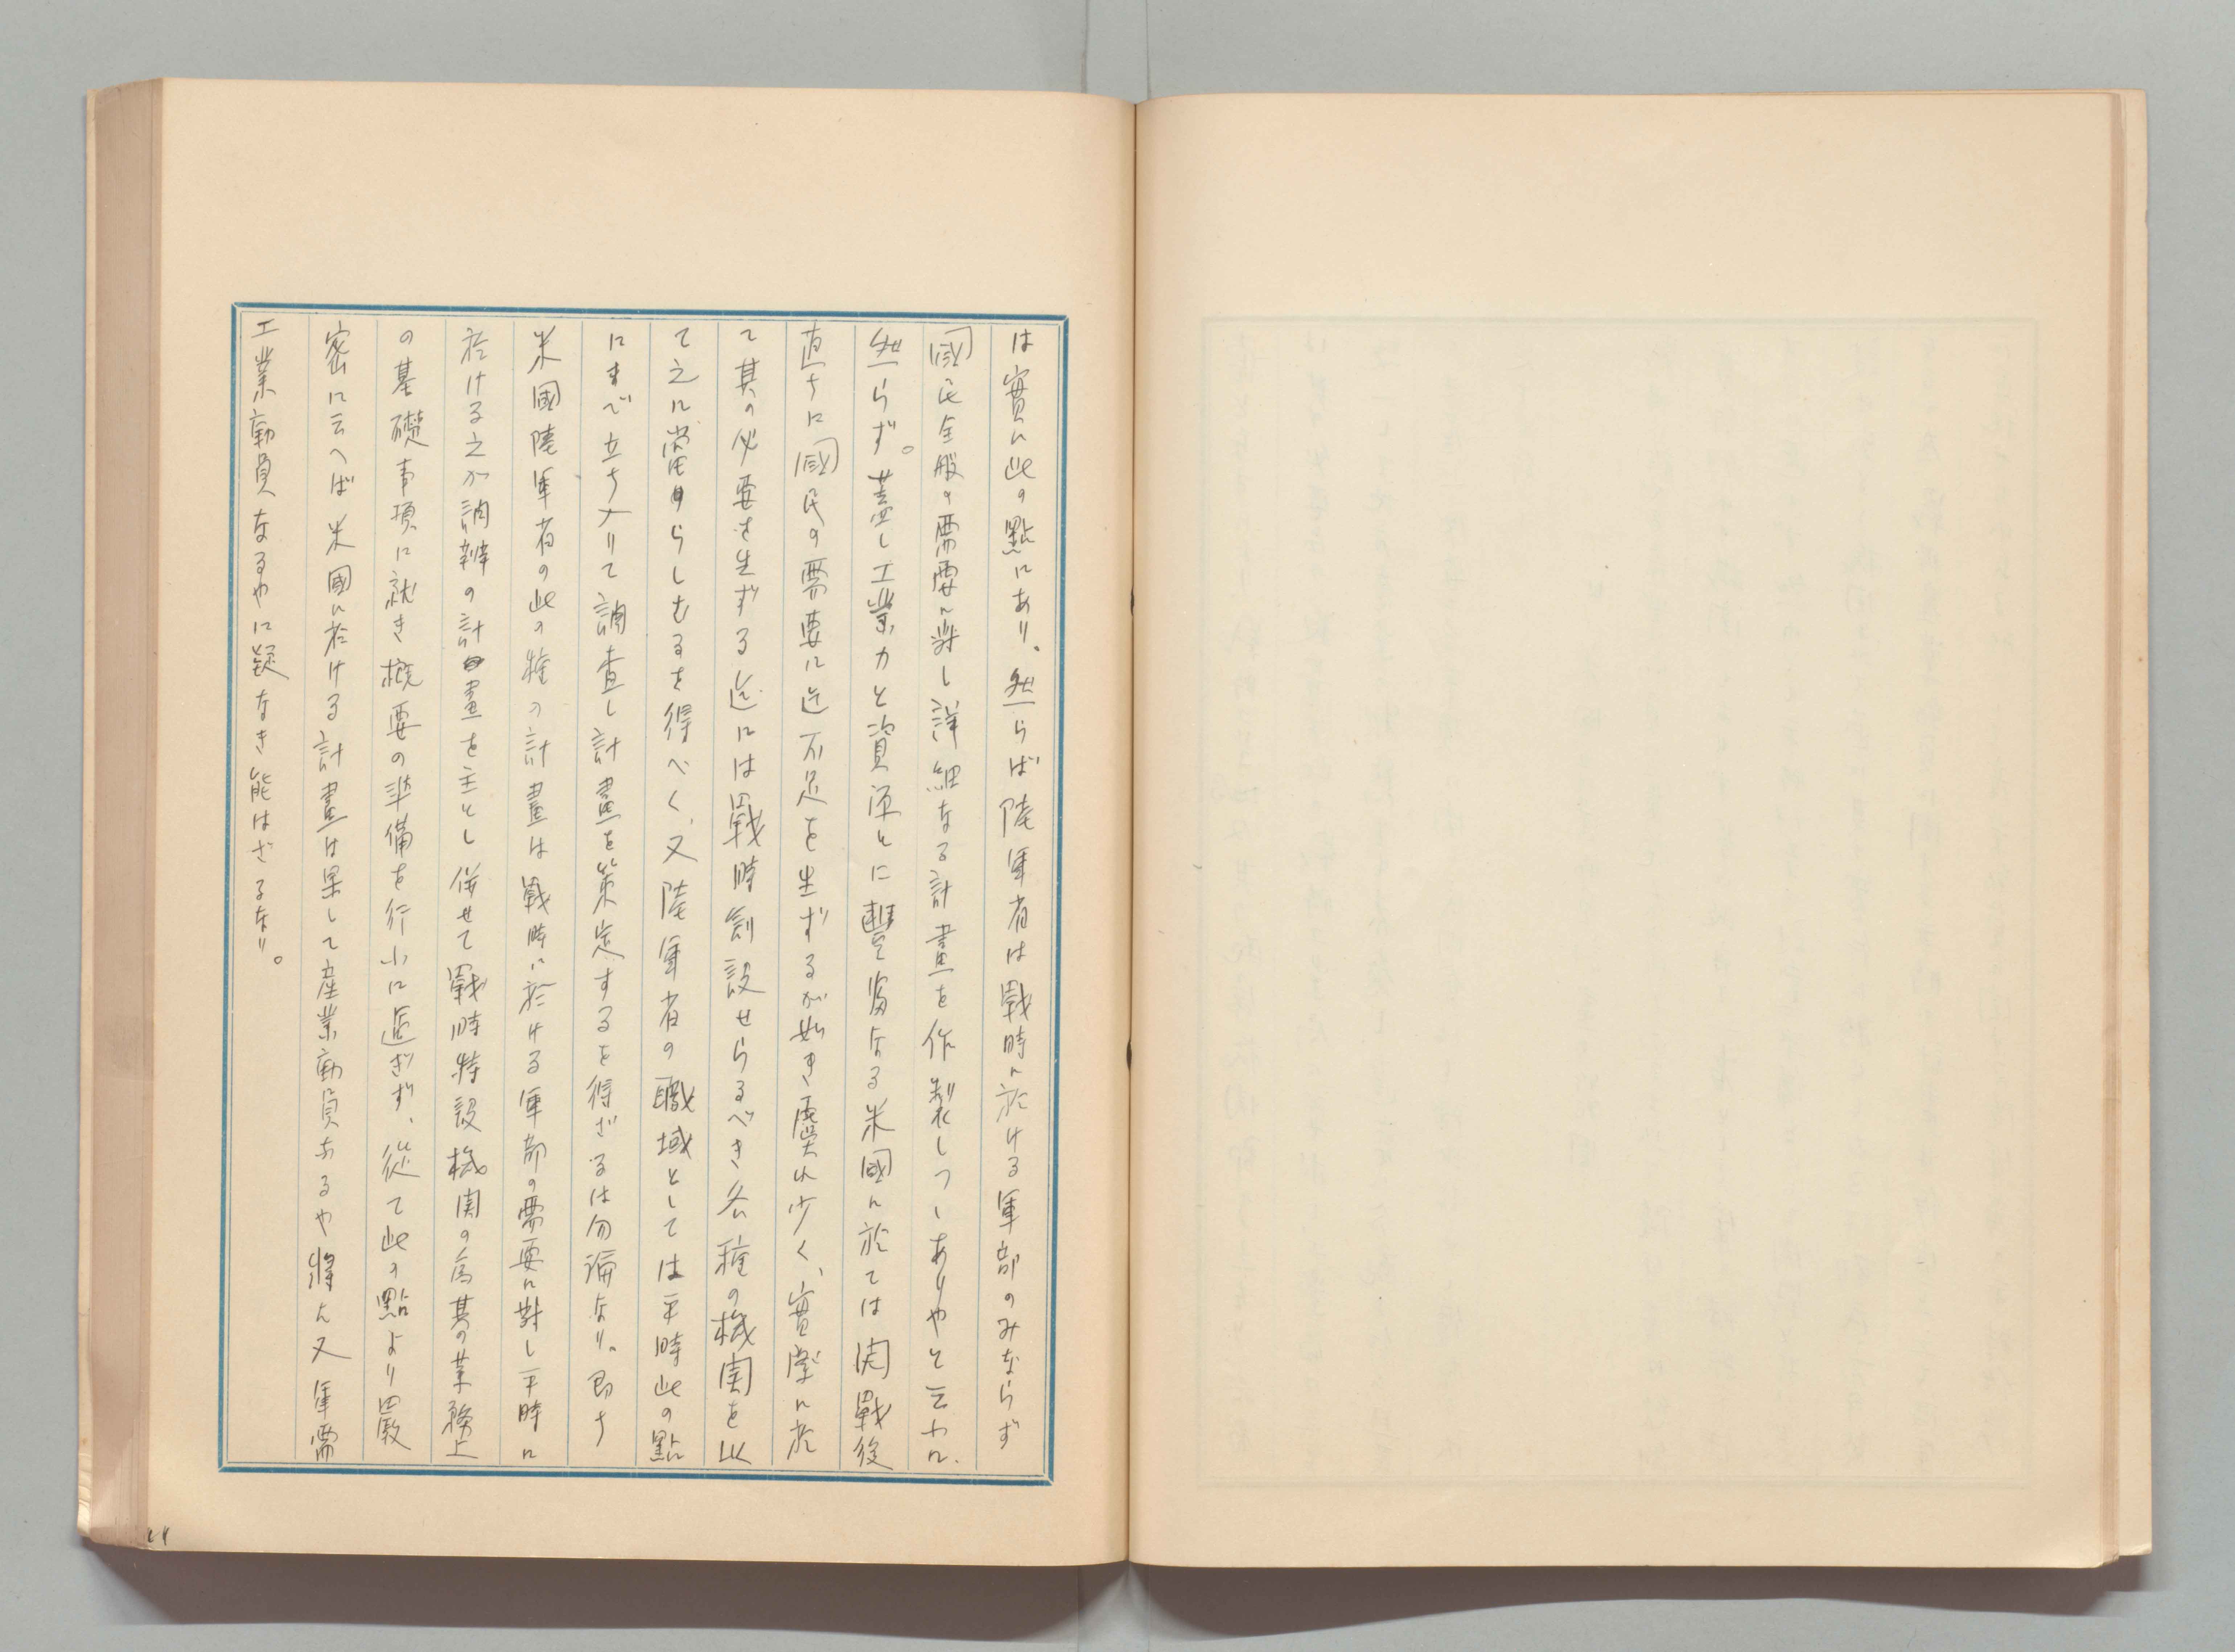 は實に此の點にあり。然らば陸軍省は戰時に於ける軍部のみならず
國民全般の需要に對し詳細なる計畫を作製しつゝありやと云ふに、
然らず。蓋し工業力と資源とに豐富なる米國に於ては開戰後
直ちに國民の需要に迄不足を生ずるが如き虞れ少く、實際に於
て其の必要を生ずる迄には戰時創設せらるべき各種の機関を以
て之に當らしむるを得べく、又陸軍省の職域としては平時此の點
にまで立ち入りて調査し計畫を策定するを得ざるは勿論なり。即ち
米國陸軍省の此の種の計畫は戰時に於ける軍部の需要に對し平時に
於ける之が調辨の計畫を主とし併せて戰時特設機関の為其の業務上
の基礎事項に就き概要の準備を行ふに過ぎず、從て此の點より嚴
密に云へば米國に於ける計畫は果して産業動員なるや將た又軍需
工業動員なるやに疑なき能はざるなり。